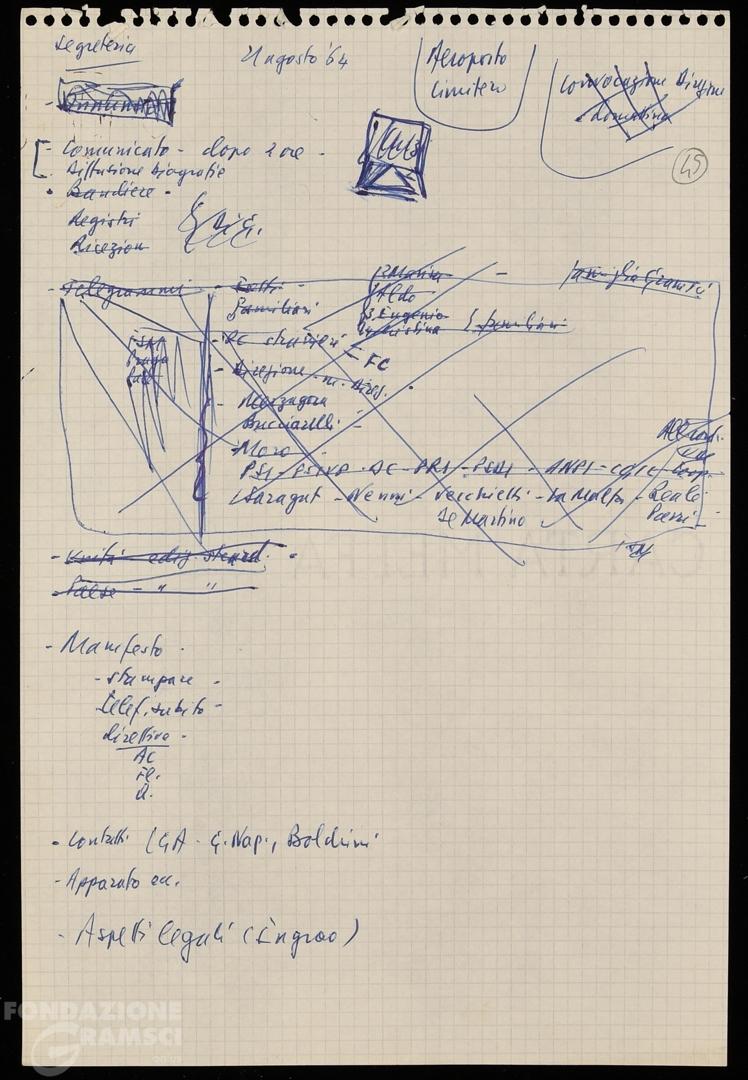 Segreteria
21 agosto '64
Aeroporto
Cimitero
Convocazione Direzione
domattina
45
- Comunicato - dopo 2 ore -
Diffusione biografie
- Bandiere -
Registri
Ricezion
- Telegrammi
Familiari
3 Marisa
Aldo
3 Eugenio
Cristina
famiglia Gramsci
5 familiari
- PC stranieri
- FC
- Direzione - m. Direz.
- Merzagora
Bucciarelli -
- Moro -
PSI - PSIUP - DC - PRI - PSDI - ANPI - CGIL -
Saragat - Nenni - Vecchietti - La Malfa - Reale
De Martino
Parri -
- Unità ediz. straord. -
- Paese - " "
- Manifesto -
- stampare -
telef. subito -
direttive -
AC
Fe.
- Contatti (GA - G. Nap., Boldrini
- Apparato ecc.
- Aspetti legali (Ingrao)
FONDAZIONE
GRAMSCI